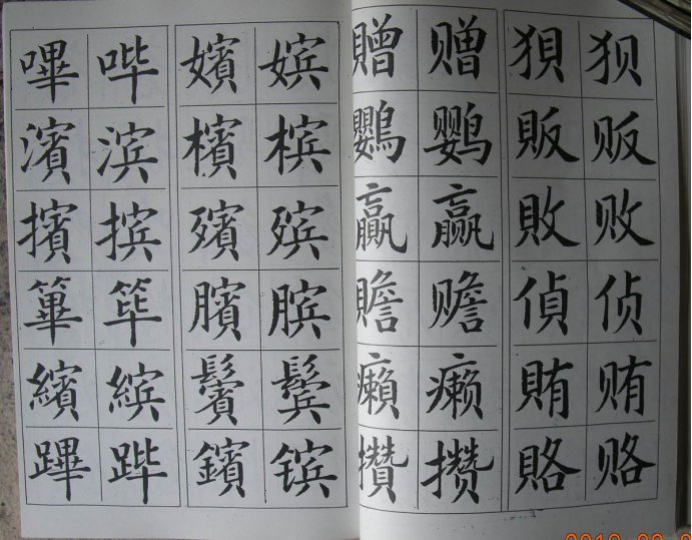 嗶 哔 嬪 嫔 贈 赠 狽 狈
濱 滨 檳 槟 鸚 鹦 販 贩
擯 摈 殯 殡 贏 赢 敗 败
篳 筚 臏 膑 贍 赡 偵 侦
繽 缤 鬢 鬓 癩 癞 賄 贿
蹕 跸 鑌 镔 攢 攒 賂 赂